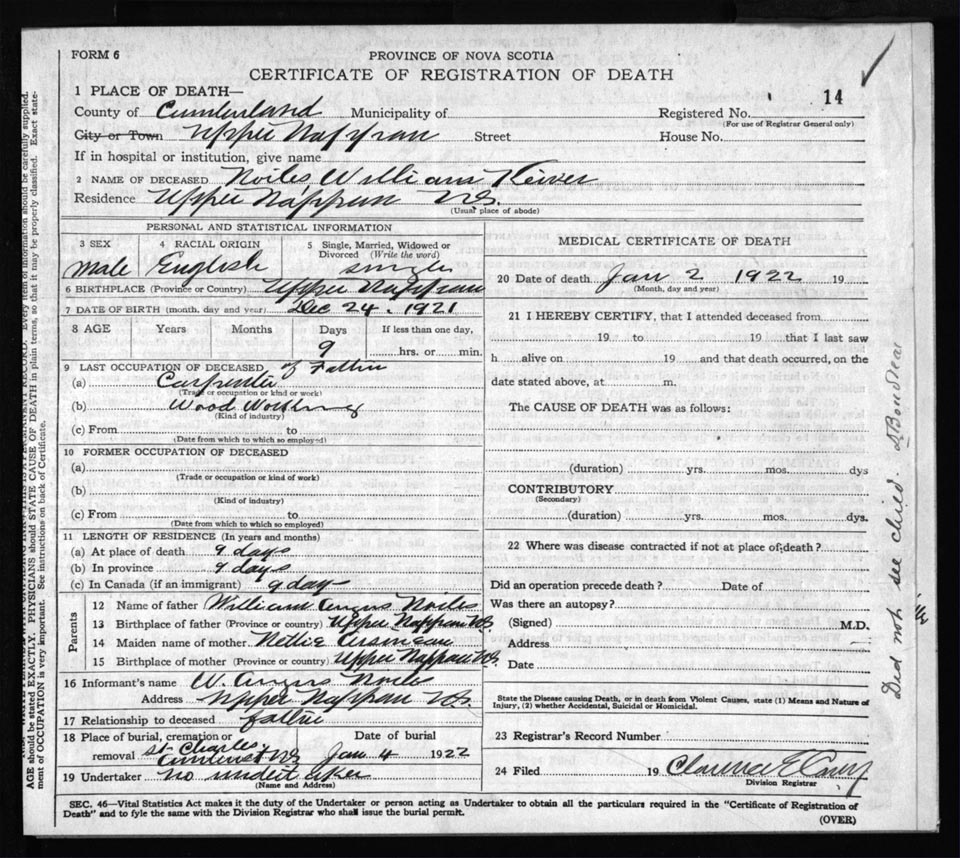 FORM 6
PROVINCE OF NOVA SCOTIA
CERTIFICATE OF REGISTRATION OF DEATH
14
1 PLACE OF DEATH—
County of Cumberland Municipality of Registered No.
(For use of Registrar General only)
City or Town Upper Nappan Street House No.
If in hospital or institution, give name
2 NAME OF DECEASED Noiles William
Residence Upper Nappan N.S.
(Usual place of abode)
PERSONAL AND STATISTICAL INFORMATION
3 SEX 4 RACIAL ORIGIN 5 Single, Married, Widowed or Divorced (Write the word)
Male English single
6 BIRTHPLACE (Province or Country) Upper Nappan
7 DATE OF BIRTH (month, day and year) Dec 24. 1921
8 AGE Years Months Days If less than one day,
9 hrs. or min.
9 LAST OCCUPATION OF DECEASED of Father
(a) Carpenter
(Trade or occupation or kind or work)
(b) Wood Working
(Kind of industry)
(c) From to
(Date from which to which so employed)
10 FORMER OCCUPATION OF DECEASED
(a)
(Trade or occupation or kind of work)
(b)
(Kind of industry)
(c) From to
(Date from which to which so employed)
11 LENGTH OF RESIDENCE (In years and months)
(a) At place of death 9 days
(b) In province 9 days
(c) In Canada (if an immigrant) 9 day
Parents
12 Name of father William Angus Noiles
13 Birthplace of father (Province or country) Upper Nappan NS
14 Maiden name of mother Nettie
15 Birthplace of mother (Province or country) Upper Nappan NS.
16 Informant's name W. Angus Noiles
Address Upper Nappan NS.
17 Relationship to deceased father
18 Place of burial, cremation or removal St Charles Amherst NS
Date of burial
Jan 4 1922
19 Undertaker no undertaker
(Name and Address)
MEDICAL CERTIFICATE OF DEATH
20 Date of death Jan 2 1922 19
(Month, day and year)
21 I HEREBY CERTIFY, that I attended deceased from
19 to 19 that I last saw
h alive on 19 and that death occurred, on the
date stated above, at m.
The CAUSE OF DEATH was as follows:
(duration) yrs. mos. dys
CONTRIBUTORY
(Secondary)
(duration) yrs. mos. dys.
22 Where was disease contracted if not at place of death?
Did an operation precede death? Date of
Was there an autopsy?
(Signed) M.D.
Address
Date
State the Disease causing Death, or in death from Violent Causes, state (1) Means and Nature of
Injury, (2) whether Accidental, Suicidal or Homicidal.
23 Registrar's Record Number
24 Filed 19 Clarence E
Division Registrar
Did not see child.
SEC. 46—Vital Statistics Act makes it the duty of the Undertaker or person acting as Undertaker to obtain all the particulars required in the "Certificate of Registration of
Death" and to fyle the same with the Division Registrar who shall issue the burial permit.
(OVER)
AGE should be stated EXACTLY. PHYSICIANS should STATE CAUSE OF DEATH in plain terms, so that it may be properly classified. Exact state-
ment of OCCUPATION is very important. See instructions on back of Certificate.